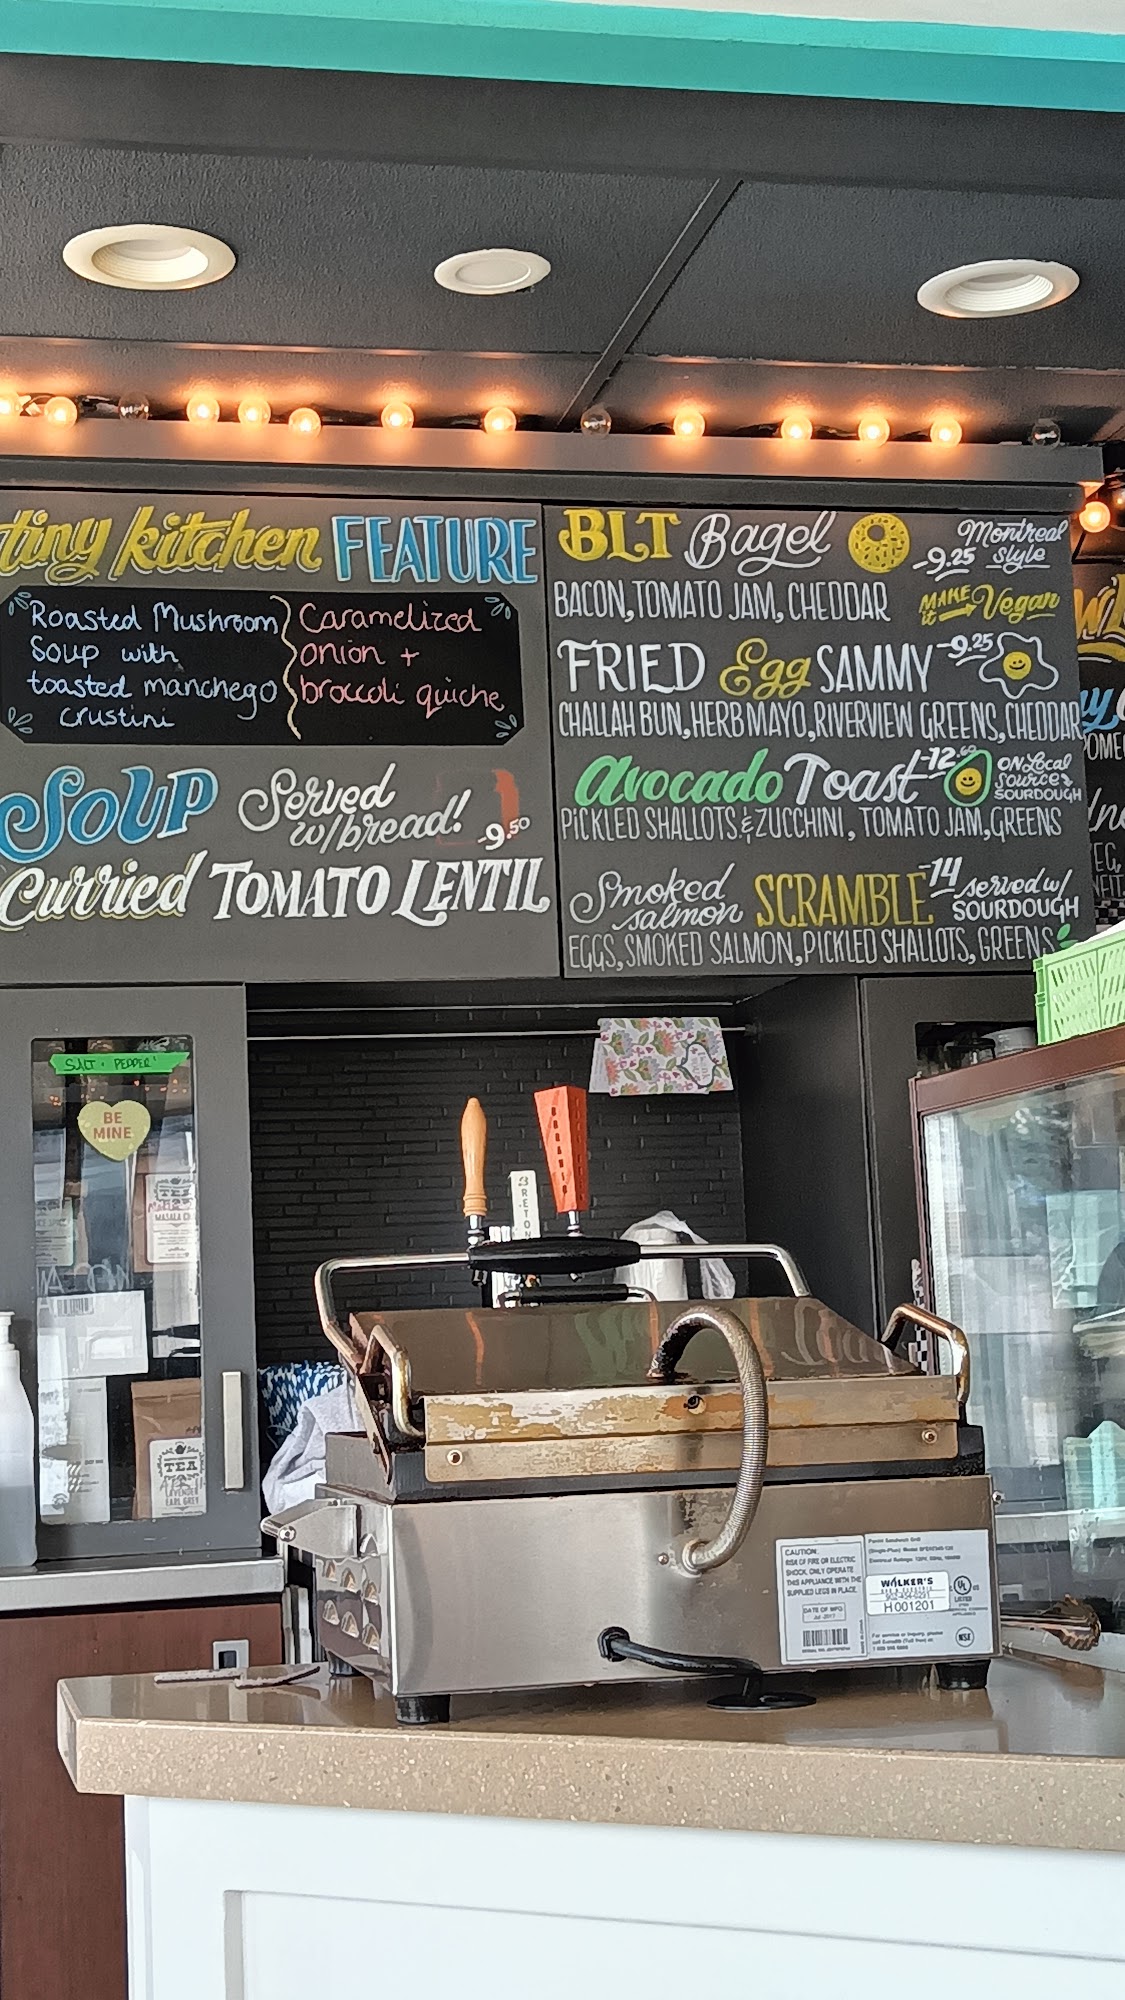 tiny kitchen FEATURE
Roasted Mushroom
Soup with
toasted manchego
crustini
Caramelized
onion +
broccoli quiche
SOUP Served
w/bread!
-9.50
Curried TOMATO LENTIL
BLT Bagel -9.25 Montreal
style
BACON, TOMATO JAM, CHEDDAR
MAKE
it Vegan
FRIED Egg SAMMY -9.25
CHALLAH BUN, HERB MAYO, RIVERVIEW GREENS, CHEDDAR
avocado Toast -12.60
ON Local
Source
SOURDOUGH
PICKLED SHALLOTS & ZUCCHINI, TOMATO JAM, GREENS
Smoked
salmon SCRAMBLE -14 served w/
SOURDOUGH
EGGS, SMOKED SALMON, PICKLED SHALLOTS, GREENS
SALT + PEPPER
BE
MINE
TEA
MASALA
TEA
LAVENDER
EARL GREY
ORGANIC
BRETON
CAUTION:
RISK OF FIRE OR ELECTRIC
SHOCK. ONLY OPERATE
THIS APPLIANCE WITH THE
SUPPLIED LEGS IN PLACE.
DATE OF MFG
Jul -2017
Panini Sandwich Grill
WALKER'S
H001201
UL
LISTED
For service or inquiry, please
NSF